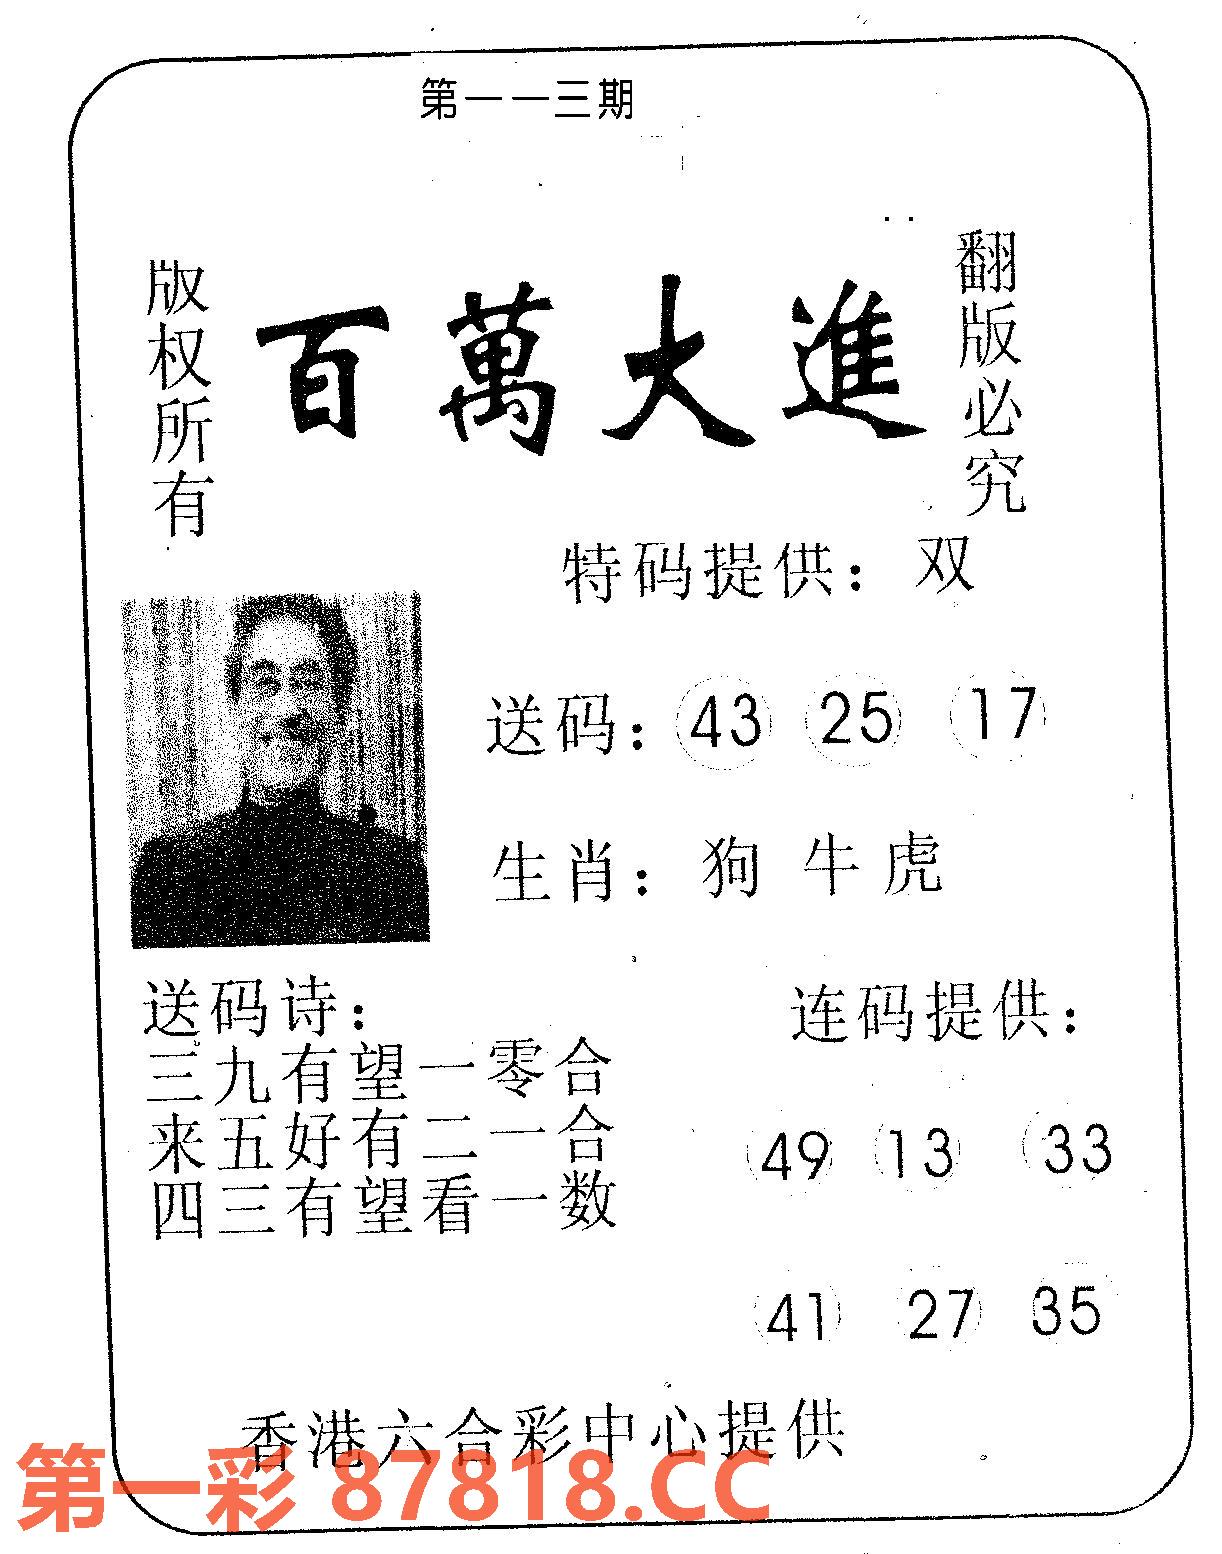 第一一三期
版权所有
百萬大進
翻版必究
特码提供：双
送码：43 25 17
生肖：狗 牛 虎
送码诗：
三九有望一零合
来五好有二一合
四三有望看一数
连码提供：
49 13 33
41 27 35
香港六合彩中心提供
第一彩 87818.CC